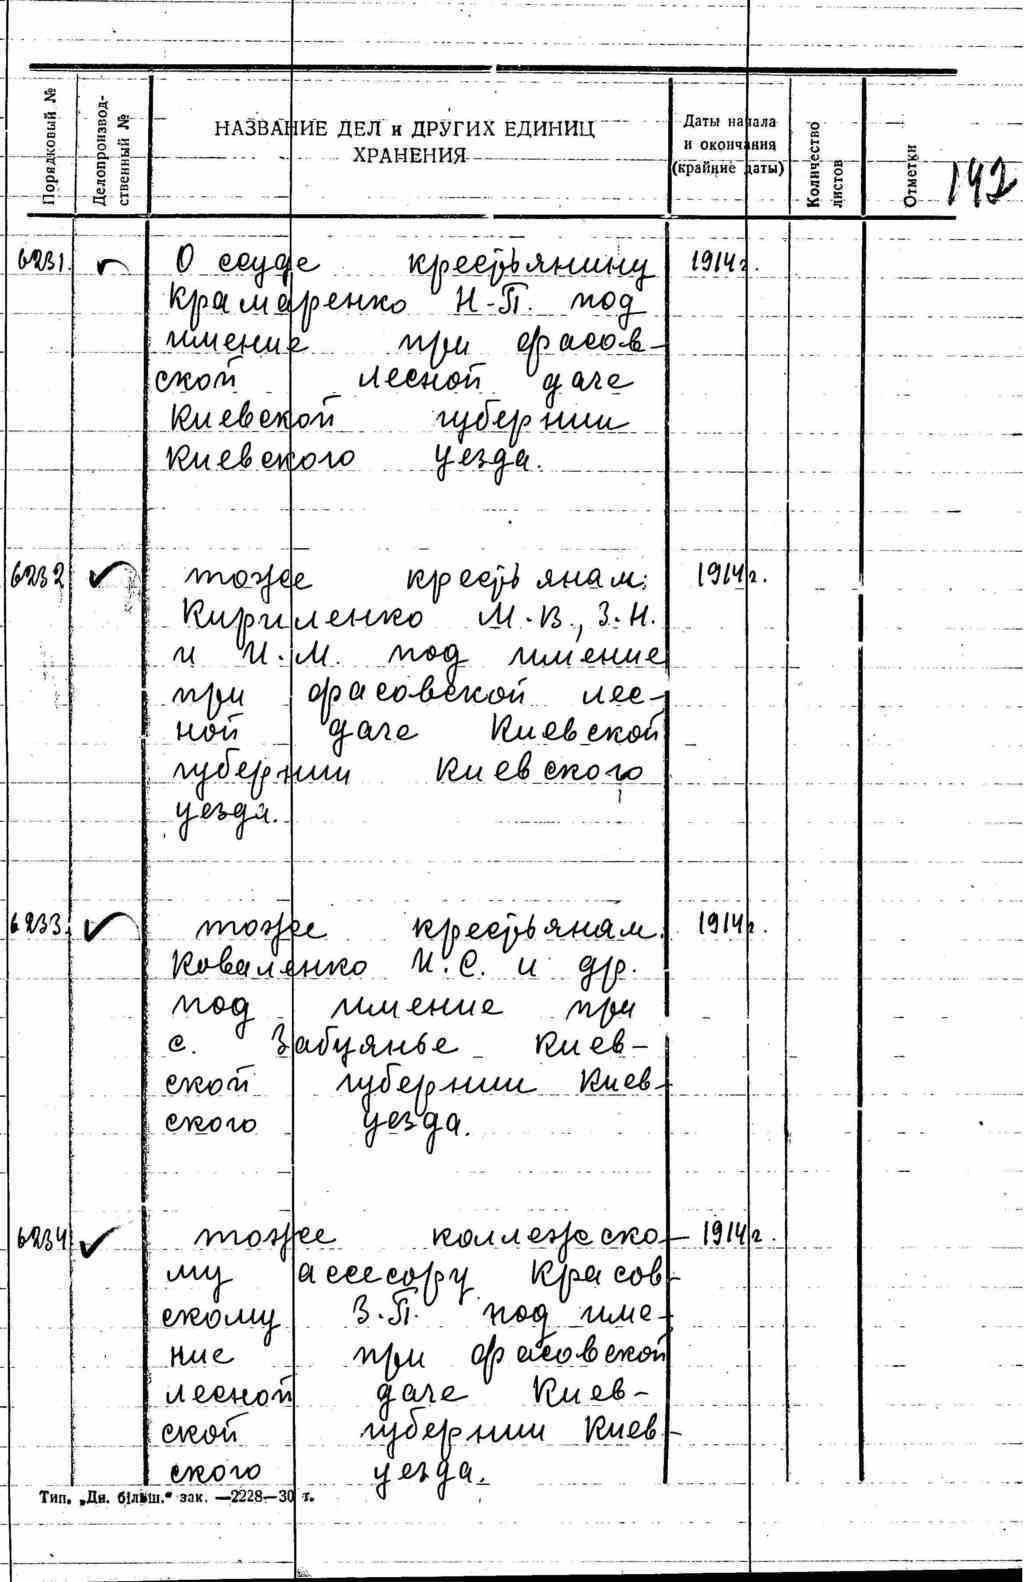 Порядковый №
Делопроизвод-
ственный №
НАЗВАНИЕ ДЕЛ и ДРУГИХ ЕДИНИЦ
ХРАНЕНИЯ
Даты начала
и окончания
(крайние даты)
Количество
листов
Отметки
142
6231. О ссуде крестьянину 1914 г.
Крамаренко Н-П. под
имение при фасов-
ской лесной даче
Киевской губернии
Киевского уезда.
6232 тоже крестьянам: 1914 г.
Кириленко М.В., З.Н.
и И.М. под имение
при фасовской лес-
ной даче Киевской
губернии Киевского
уезда.
6233. тоже крестьянам. 1914 г.
Коваленко И.С. и др.
под имение при
с. Забуянье Киев-
ской губернии Киев-
ского уезда.
6234 тоже коллежско- 1914 г.
му ассесору Красов-
скому З.П. под име-
ние при фасовской
лесной даче Киев-
ской губернии Киев-
ского уезда.
Тип. „Дн. більш.“ зак. —2228—30 т.